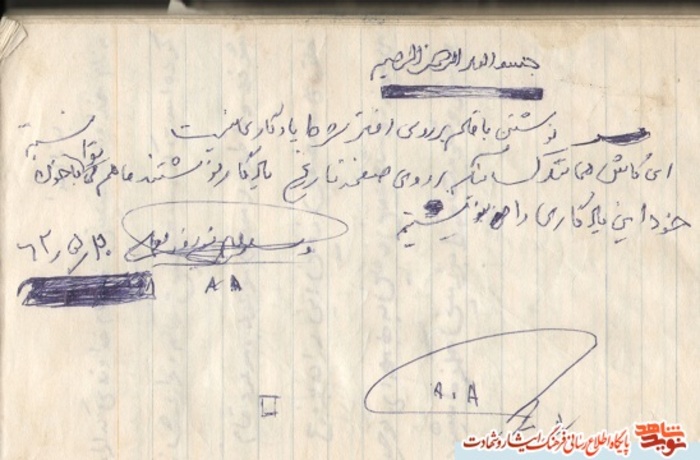 بسم الله الرحمن الرحیم
نوشتن با قلم بر روی دفتر شرط یادگاری نیست
ای کاش همانند کسانیکه بر روی صفحه تاریخ یادگار نوشتند ما هم می‌توانستیم با خون
خود این یادگاری را بنویسیم
۶۲/۵/۲۰
A A
A . A
نوید شاهد
پایگاه اطلاع رسانی فرهنگ ایثار و شهادت